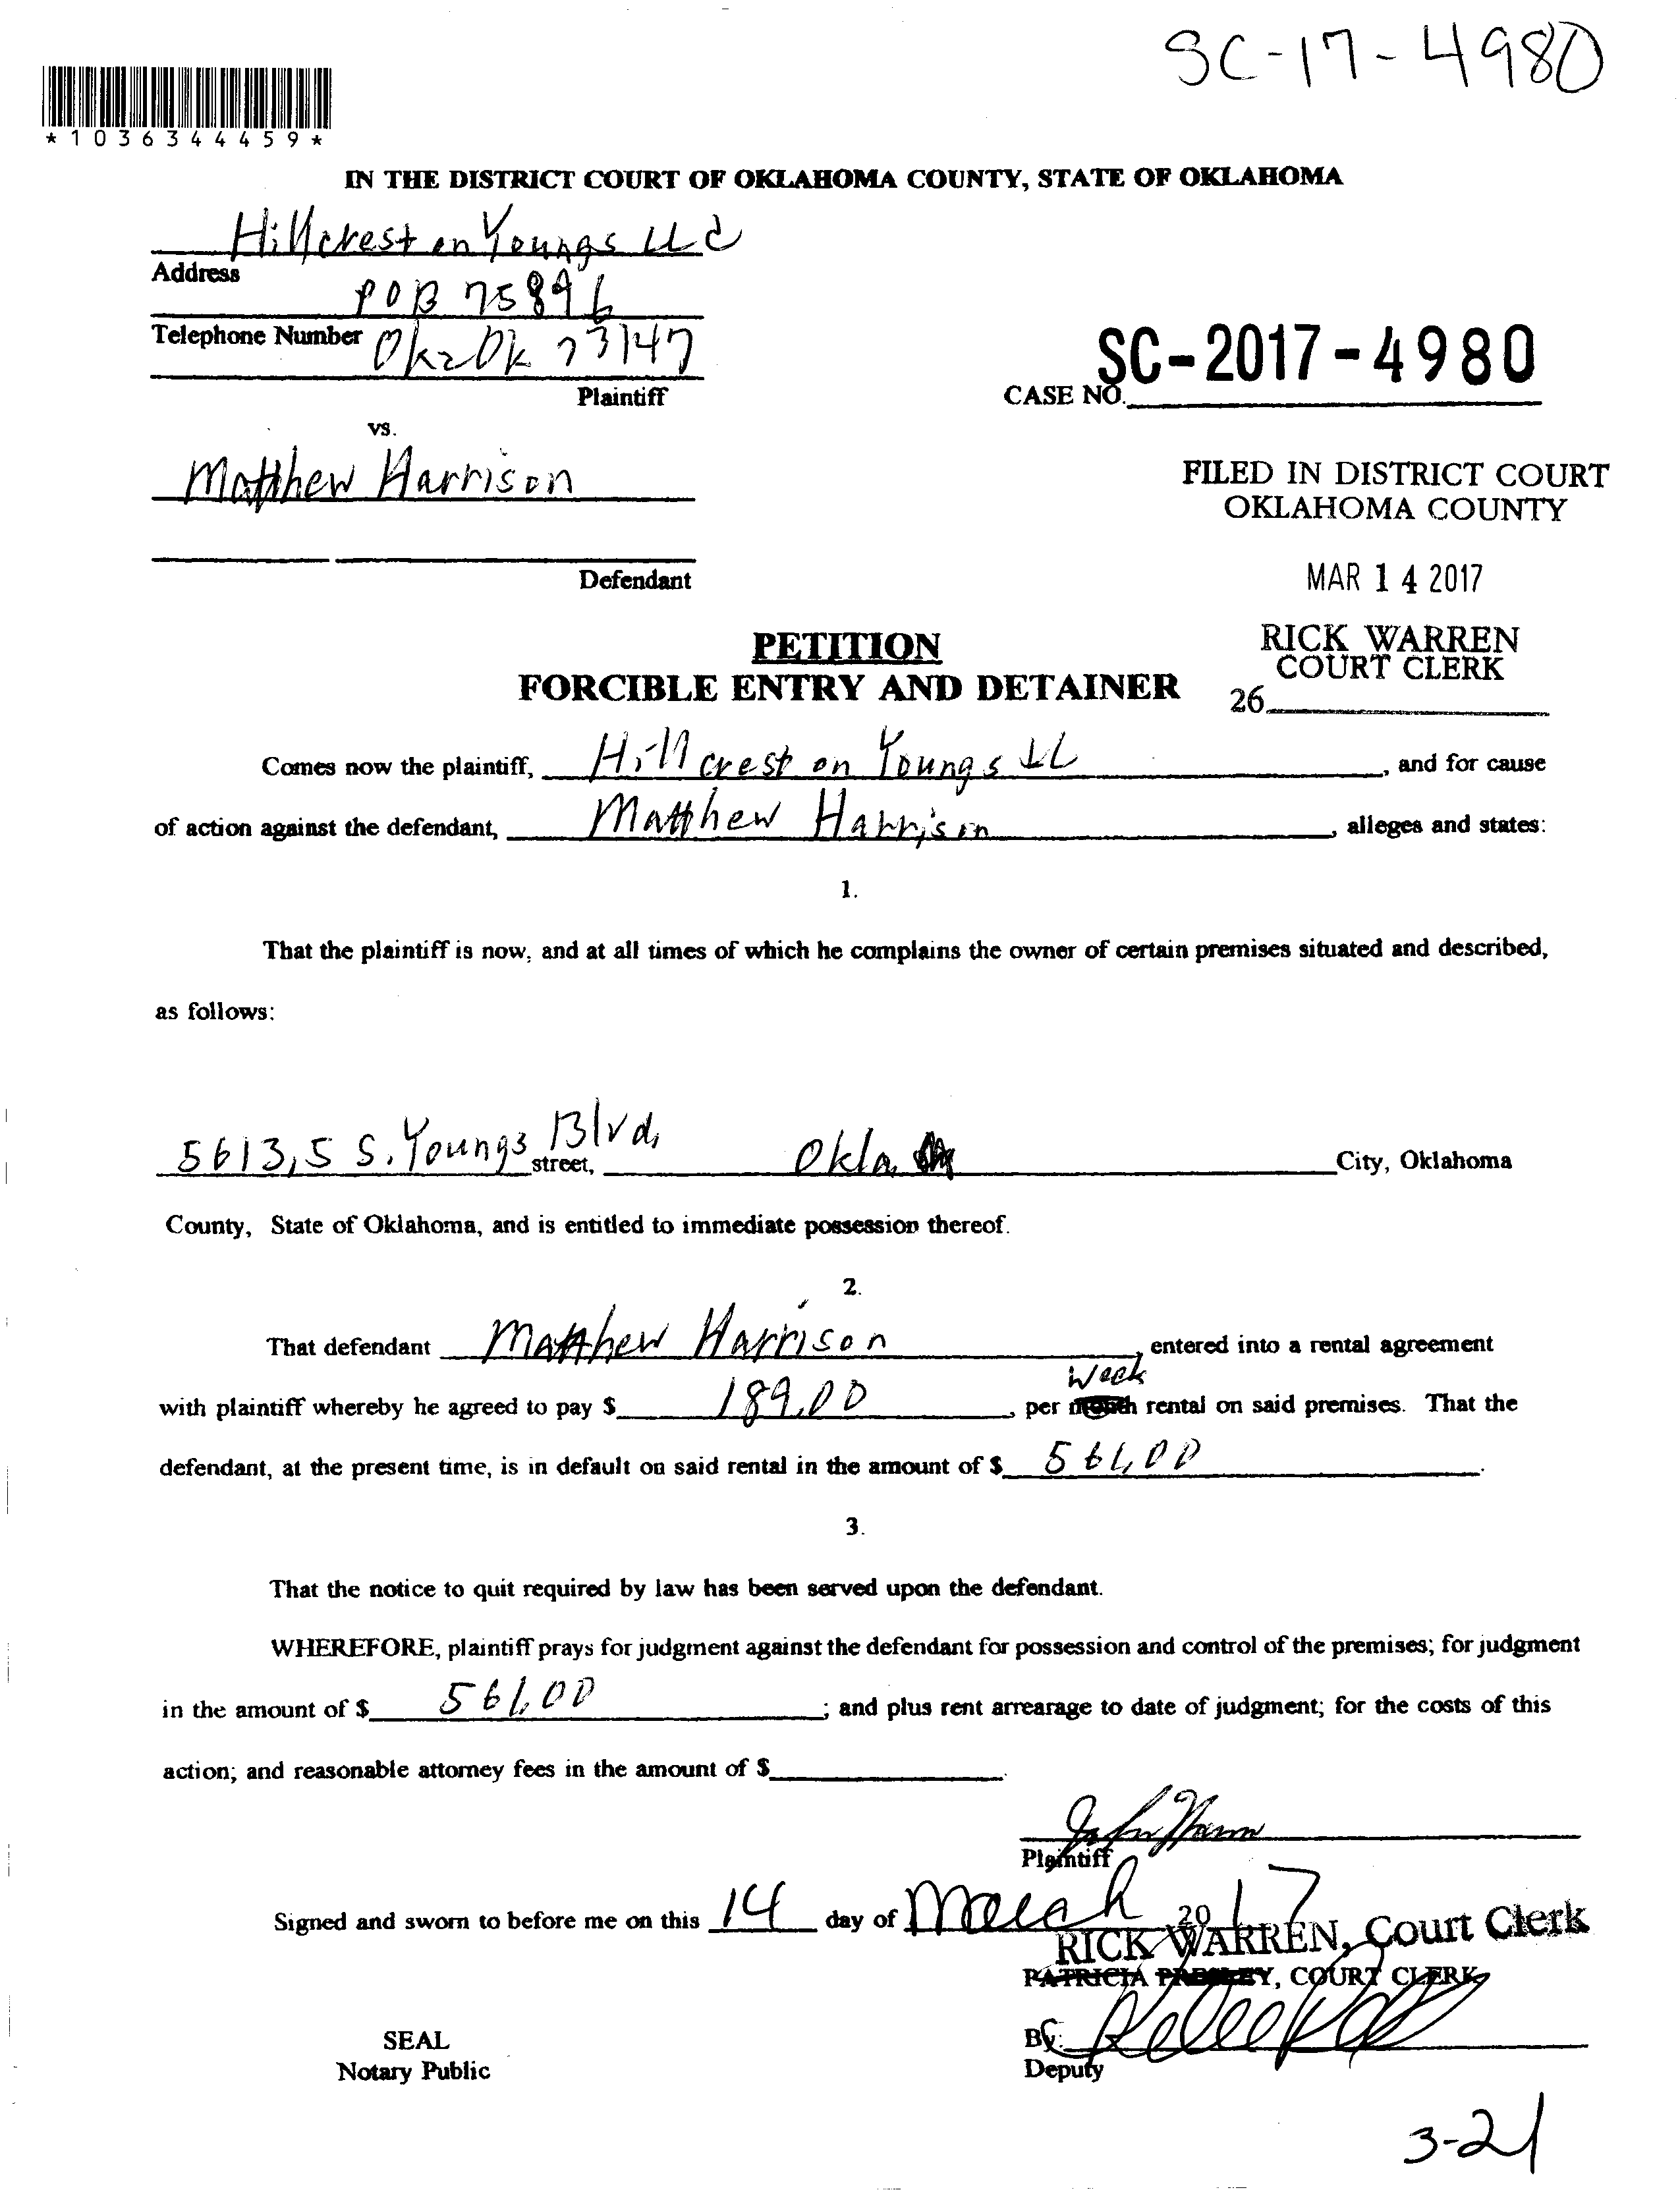 SC-17-4980
*1036344459*
IN THE DISTRICT COURT OF OKLAHOMA COUNTY, STATE OF OKLAHOMA
Hillcrest on Youngs LLC
Address
POB 75896
Telephone Number Okc Ok 73147
Plaintiff
SC-2017-4980
CASE NO.
vs.
Matthew Harrison
Defendant
FILED IN DISTRICT COURT
OKLAHOMA COUNTY
MAR 14 2017
RICK WARREN
COURT CLERK
26
PETITION
FORCIBLE ENTRY AND DETAINER
Comes now the plaintiff, Hillcrest on Youngs LL, and for cause
of action against the defendant, Matthew Harrison, alleges and states:
1.
That the plaintiff is now, and at all times of which he complains the owner of certain premises situated and described,
as follows:
5613.5 S. Youngs Blvd. street, Okla City, Oklahoma
County, State of Oklahoma, and is entitled to immediate possession thereof.
2.
That defendant Matthew Harrison, entered into a rental agreement
Week
with plaintiff whereby he agreed to pay $ 189.00, per month rental on said premises. That the
defendant, at the present time, is in default on said rental in the amount of $ 561.00.
3.
That the notice to quit required by law has been served upon the defendant.
WHEREFORE, plaintiff prays for judgment against the defendant for possession and control of the premises; for judgment
in the amount of $ 561.00; and plus rent arrearage to date of judgment; for the costs of this
action; and reasonable attorney fees in the amount of $.
Plaintiff
Signed and sworn to before me on this 14 day of March 2017
RICK WARREN, Court Clerk
PATRICIA PRESLEY, COURT CLERK
By:
Deputy
SEAL
Notary Public
3-21